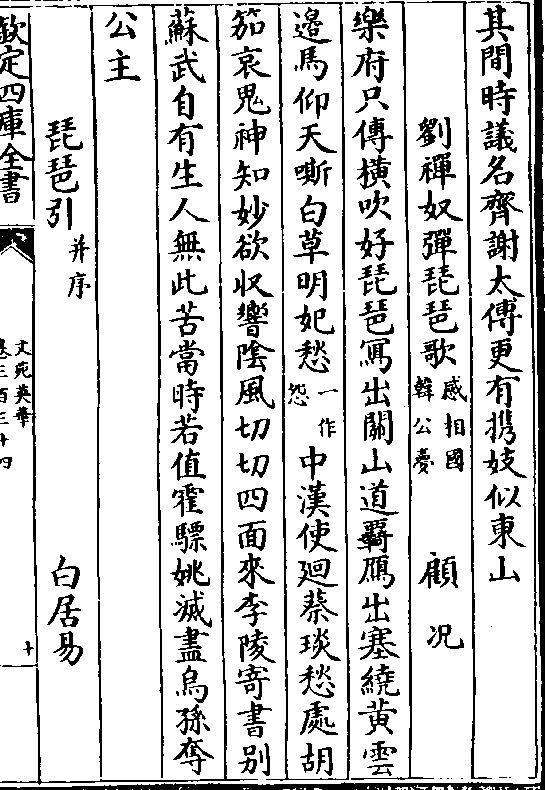 其間時議名齊謝太傅更有携妓似東山
劉禪奴彈琵琶歌 感相國韓公夢 顧況
樂府只傳橫吹好琵琶寫出關山道羈鴈出塞繞黃雲
邉馬仰天嘶白草明妃愁 一作怨 中漢使廻蔡琰愁處胡
笳哀鬼神知妙欲収響陰風切切四面來李陵寄書别
蘇武自有生人無此苦當時若值霍驃姚滅盡烏孫奪
公主
琵琶引 并序 白居易
欽定四庫全書
文苑英華
卷三百三十四
十